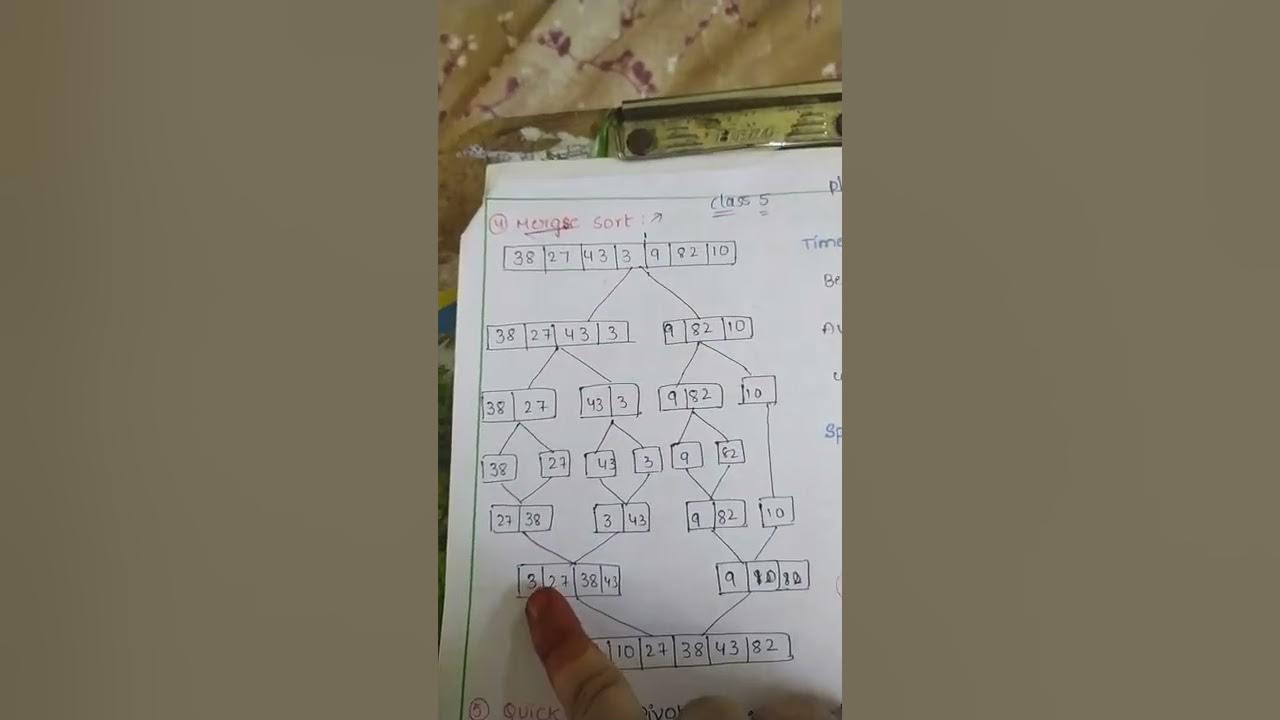 Class 5
④ Merge sort :
Time
38 27 43 3 9 82 10
Be
38 27 43 3 9 82 10
Av
38 27 43 3 9 82 10
Sp
38 27 43 3 9 82
27 38 3 43 9 82 10
3 27 38 43 9 10
10 27 38 43 82
⑤ Quick